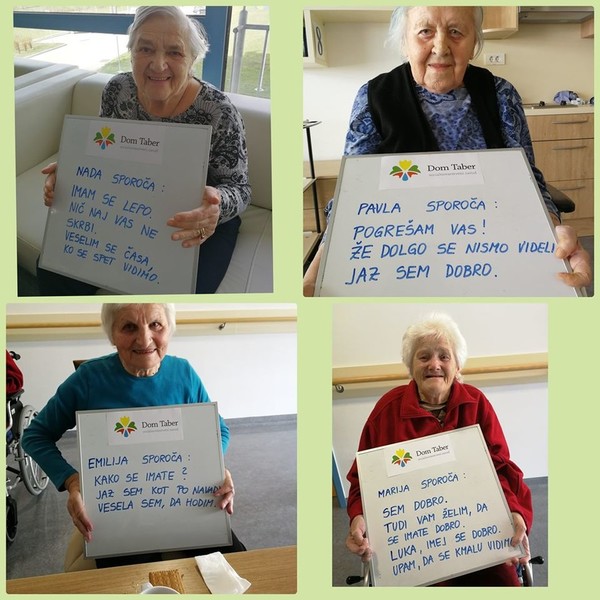 Dom Taber
NADA SPOROČA:
IMAM SE LEPO.
NIČ NAJ VAS NE
SKRBI.
VESELIM SE ČASA,
KO SE SPET VIDIMO.
Dom Taber
PAVLA SPOROČA:
POGREŠAM VAS!
ŽE DOLGO SE NISMO VIDELI
JAZ SEM DOBRO.
Dom Taber
EMILIJA SPOROČA:
KAKO SE IMATE?
JAZ SEM KOT PO NAVADI
VESELA SEM, DA HODIM.
Dom Taber
MARIJA SPOROČA:
SEM DOBRO.
TUDI VAM ŽELIM, DA
SE IMATE DOBRO.
LUKA, IMEJ SE DOBRO.
UPAM, DA SE KMALU VIDIMO